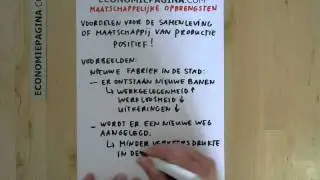 ECONOMIEPAGINA.COM
MAATSCHAPPELIJKE OPBRENGSTEN
VOORDELEN VOOR DE SAMENLEVING
OF MAATSCHAPPIJ VAN PRODUCTIE
POSITIEF!
VOORBEELDEN:
NIEUWE FABRIEK IN DE STAD:
- ER ONTSTAAN NIEUWE BANEN
↳ WERKGELEGENHEID ↑
WERKLOOSHEID ↓
UITKERINGEN ↓
- WORDT ER EEN NIEUWE WEG
AANGELEGD.
↳ MINDER VERKEERSDRUKTE
IN DE
ECONOMIEPAGINA.COM